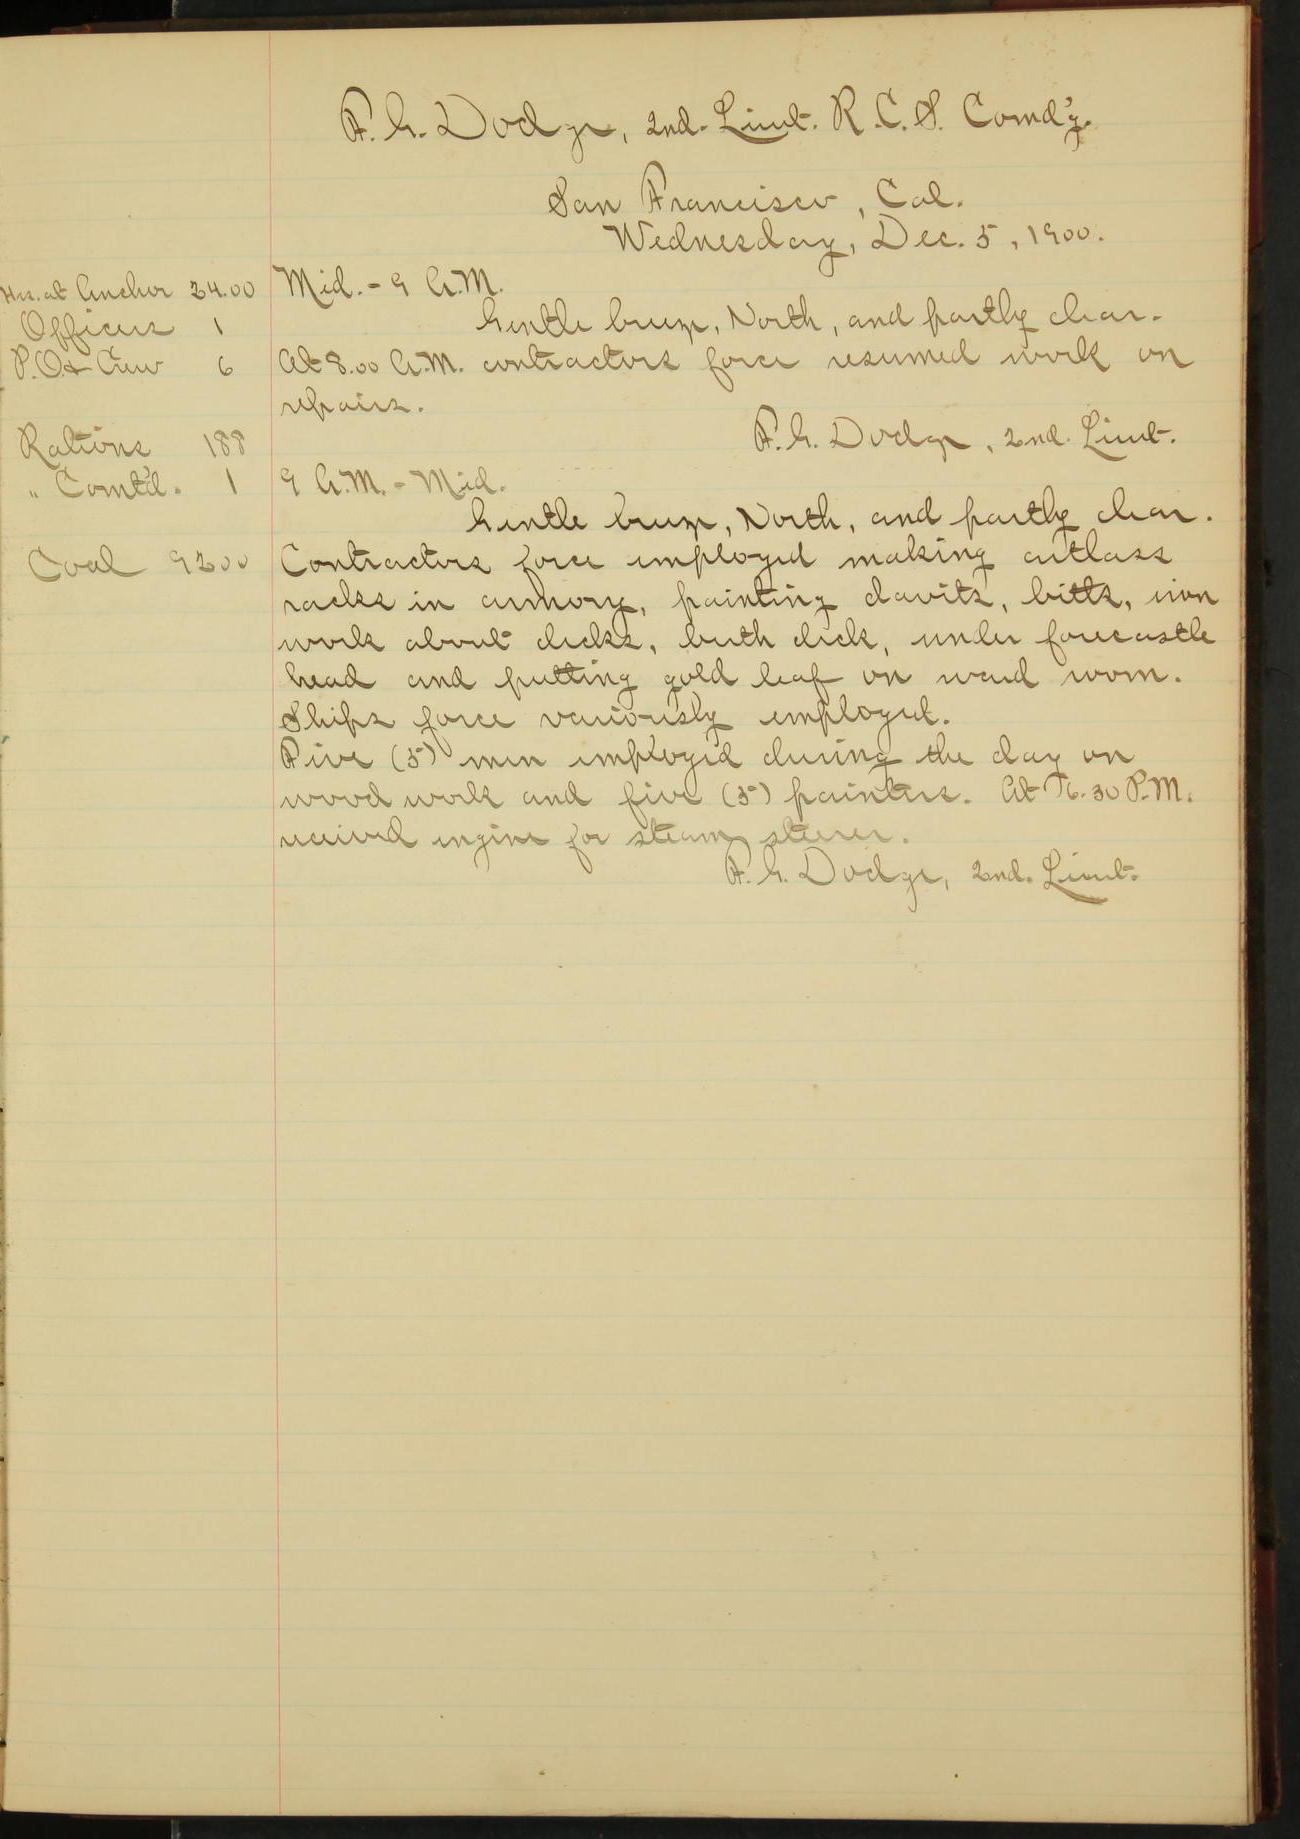 F. G. Dodge, 2nd. Lieut. R.C.S. Comd'g.
San Francisco, Cal.
Wednesday, Dec. 5, 1900.
Hrs. at Anchor 24.00
Mid. - 9 A.M.
Officers 1
Gentle breeze, North, and partly clear.
P.O. & Crew 6
At 8.00 A.M. contractors force resumed work on
repairs.
Rations 188
F. G. Dodge, 2nd. Lieut.
" Comt'd. 1
9 A.M. - Mid.
Gentle breeze, North, and partly clear.
Coal 9200
Contractors force employed making cutlass
racks in armory, painting davits, bitts, iron
work about decks, berth deck, under forecastle
head and putting gold leaf on ward room.
Ships force variously employed.
Five (5) men employed during the day on
wood work and five (5) painters. At 6.30 P.M.
received engine for steam steerer.
F. G. Dodge, 2nd. Lieut.